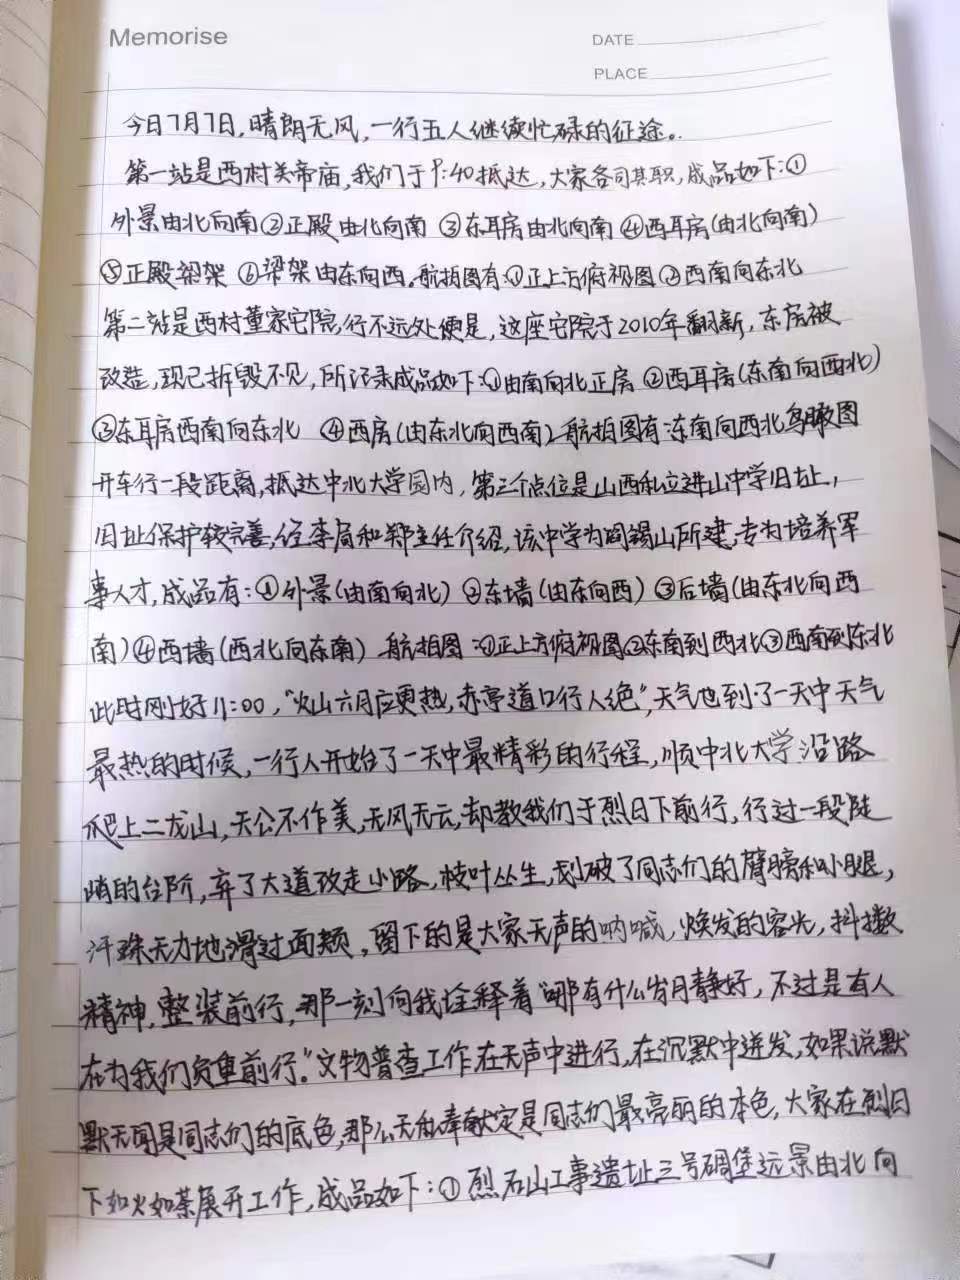 Memorise
DATE
PLACE
今日7月7日，晴朗无风，一行五人继续忙碌的征途。
第一站是西村关帝庙，我们于9:40抵达，大家各司其职，成品如下：①
外景由北向南②正殿由北向南 ③东耳房由北向南 ④西耳房（由北向南）
⑤正殿梁架 ⑥梁架由东向西，航拍图有：①正上方俯视图②西南向东北
第二站是西村董家宅院，行不远处便是，这座宅院于2010年翻新，东房被
改造，现已拆毁不见，所记录成品如下：①由南向北正房 ②西耳房（东南向西北）
③东耳房西南向东北 ④西房（由东北向西南）航拍图有：东南向西北鸟瞰图
开车行一段距离，抵达中北大学园内，第三个点位是山西私立进山中学旧址，
旧址保护较完善，经李局和郑主任介绍，该中学为阎锡山所建，专为培养军
事人才，成品有：①外景（由南向北）②东墙（由东向西）③后墙（由东北向西
南）④西墙（西北向东南）航拍图：①正上方俯视图②东南到西北③西南到东北
此时刚好11:00，“火山六月应更热，赤亭道口行人绝”，天气也到了一天中天气
最热的时候，一行人开始了一天中最精彩的行程，顺中北大学沿路
爬上二龙山，天公不作美，无风无云，却教我们于烈日下前行，行过一段陡
峭的台阶，弃了大道改走小路，枝叶丛生，划破了同志们的臂膀和小腿，
汗珠无力地滑过面颊，留下的是大家无声的呐喊，焕发的容光，抖擞
精神，整装前行，那一刻向我诠释着“哪有什么岁月静好，不过是有人
在为我们负重前行。”文物普查工作在无声中进行，在沉默中迸发，如果说默
默无闻是同志们的底色，那么无私奉献定是同志们最亮丽的本色，大家在烈日
下如火如荼展开工作，成品如下：①烈石山工事遗址三号碉堡远景由北向